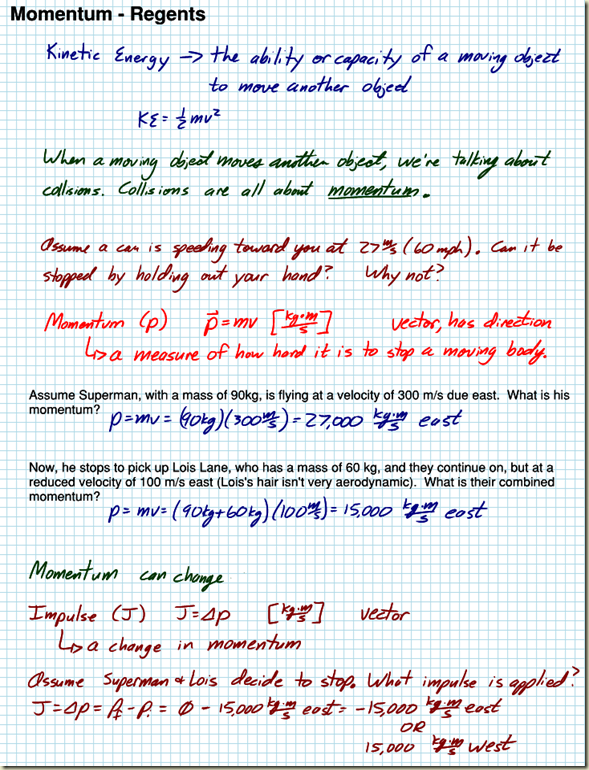 Momentum - Regents
Kinetic Energy → the ability or capacity of a moving object
to move another object
KE = ½mv²
When a moving object moves another object, we're talking about
collisions. Collisions are all about momentum.
Assume a car is speeding toward you at 27 m/s (60 mph). Can it be
stopped by holding out your hand? Why not?
Momentum (p) p⃗ = mv [kg·m/s] vector, has direction
↳ a measure of how hard it is to stop a moving body.
Assume Superman, with a mass of 90kg, is flying at a velocity of 300 m/s due east. What is his
momentum? p = mv = (90kg)(300 m/s) = 27,000 kg·m/s east
Now, he stops to pick up Lois Lane, who has a mass of 60 kg, and they continue on, but at a
reduced velocity of 100 m/s east (Lois's hair isn't very aerodynamic). What is their combined
momentum?
p = mv = (90kg+60kg)(100 m/s) = 15,000 kg·m/s east
Momentum can change
Impulse (J) J = Δp [kg·m/s] vector
↳ a change in momentum
Assume Superman & Lois decide to stop. What impulse is applied?
J = Δp = Pf - Pi = Ø - 15,000 kg·m/s east = -15,000 kg·m/s east
OR
15,000 kg·m/s west